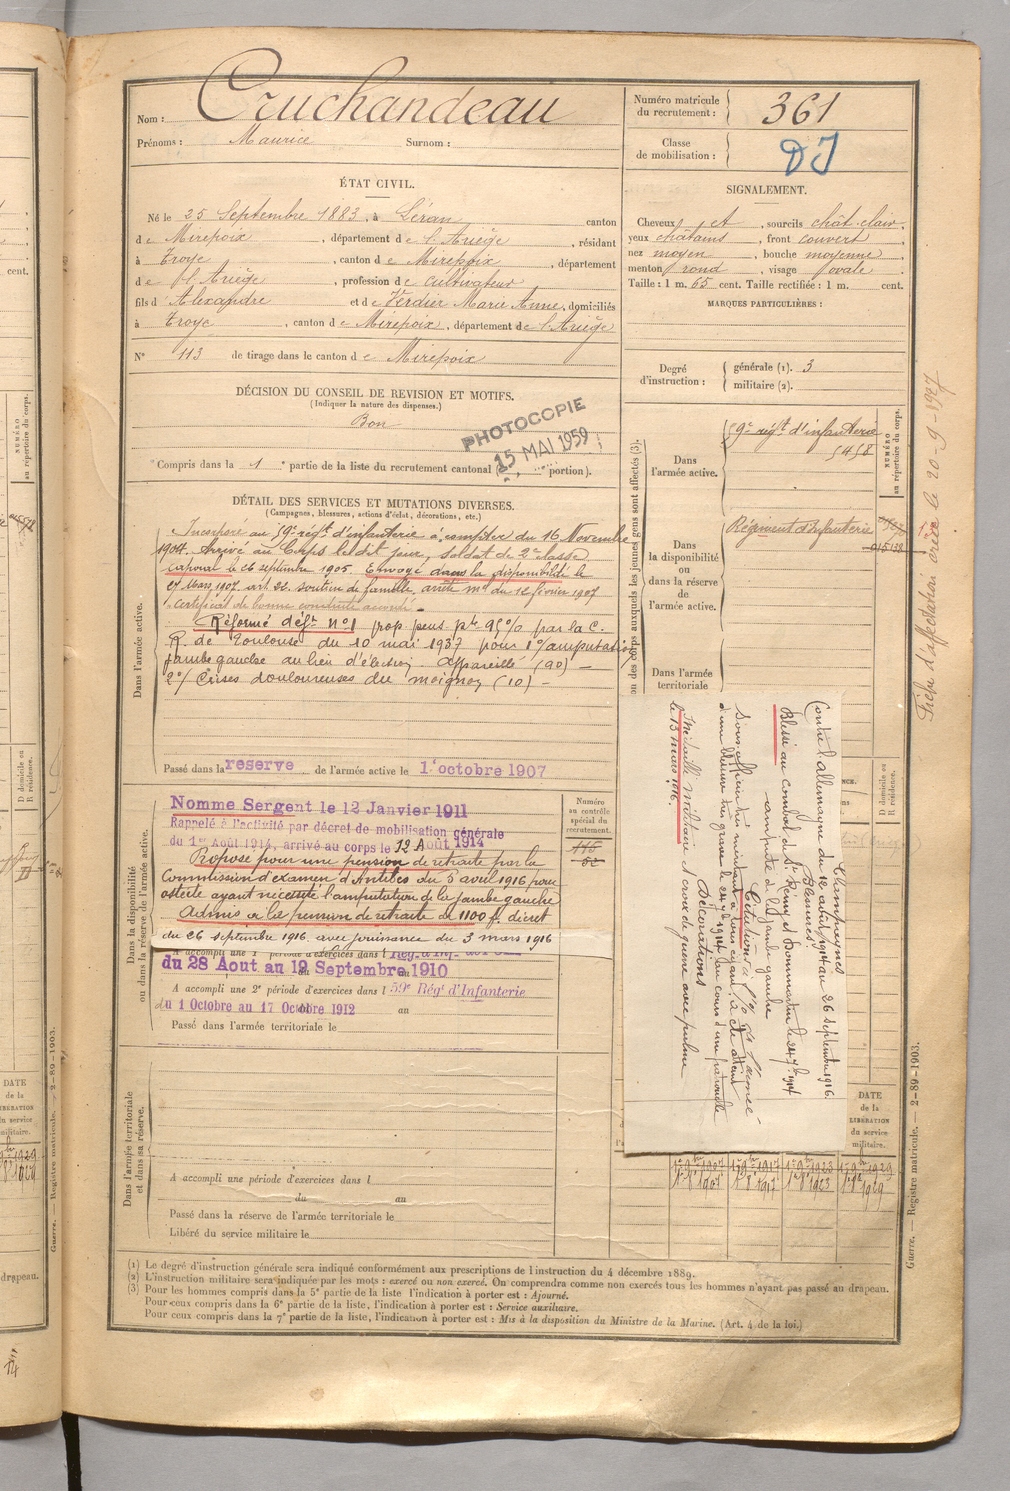 Nom : Cruchandeau
Prénoms : Maurice Surnom :
Numéro matricule du recrutement : 361
Classe de mobilisation : DJ
ÉTAT CIVIL.
Né le 25 Septembre 1883, à Léran canton
de Mirepoix, département de l'Ariège, résidant
à Troye, canton de Mirepoix, département
de l'Ariège, profession de cultivateur
fils d'Alexandre et de Verdier Marie Anne, domiciliés
à Troye, canton de Mirepoix, département de l'Ariège
N° 113 de tirage dans le canton de Mirepoix
SIGNALEMENT.
Cheveux et, sourcils chât. clair,
yeux châtains, front couvert,
nez moyen, bouche moyenne,
menton rond, visage ovale
Taille : 1 m. 65 cent. Taille rectifiée : 1 m. cent.
MARQUES PARTICULIÈRES :
Degré d'instruction : générale (1). 3
militaire (2).
DÉCISION DU CONSEIL DE REVISION ET MOTIFS.
(Indiquer la nature des dispenses.)
Bon
PHOTOCOPIE
15 MAI 1959
Compris dans la 1e partie de la liste du recrutement cantonal ( portion).
DÉTAIL DES SERVICES ET MUTATIONS DIVERSES.
(Campagnes, blessures, actions d'éclat, décorations, etc.)
Dans l'armée active.
Incorporé au 59e régt d'infanterie à compter du 16 Novembre
1904. Arrivé au Corps le dit jour, soldat de 2e classe
caporal le 26 septembre 1905. Envoyé dans la disponibilité le
Mars 1907 art 22. soutien de famille, arrêté mel du 12 février 1907
certificat de bonne conduite accordé.
Réformé déft n°1 prop. pens. pte 95% par la C.
R. de Toulouse du 10 mai 1937 pour 1°/ amputation
jambe gauche au lieu d'élection appareillé (90) –
2°/ Crises douloureuses du moignon (10) –
Passé dans la réserve de l'armée active le 1er octobre 1907
Dans la disponibilité ou dans la réserve de l'armée active.
Nomme Sergent le 12 Janvier 1911
Rappelé à l'activité par décret de mobilisation générale
du 1er Août 1914, arrivé au corps le 12 Août 1914
Proposé pour une pension de retraite par la
Commission d'examen d'Antibes du 5 avril 1916 pour
ostéite ayant nécessité l'amputation de la jambe gauche
Admis à la pension de retraite de 1100 f. décret
du 26 septembre 1916 avec jouissance du 3 mars 1916
A accompli une 1e période d'exercices dans l
du 28 Aout au 19 Septembre 1910
A accompli une 2e période d'exercices dans l 59e Régt d'Infanterie
du 1 Octobre au 17 Octobre 1912 au
Passé dans l'armée territoriale le
Numéro au contrôle spécial du recrutement.
Dans l'armée territoriale et dans sa réserve.
A accompli une période d'exercices dans l
du au
Passé dans la réserve de l'armée territoriale le
Libéré du service militaire le
Dans l'armée active.
59e régt d'infanterie
5458
NUMÉRO au répertoire du corps.
Dans la disponibilité ou dans la réserve de l'armée active.
Régiment d'Infanterie
015138
Dans l'armée territoriale
Fiche d'affectation créée le 20-9-1927
Campagnes
Contre l'allemagne du 12 août 1914 au 26 septembre 1916.
Blessures
Blessé au combat de St Remy et Dommartin le 24 7bre 1914
amputé de la jambe gauche
Citations
Sous officier très méritant a
d'une blessure très grave le 24 7bre 1914 au cours d'une patrouille
Décorations
Médaille militaire et croix de guerre avec palme
le 13 mars 1916.
D domicile ou R résidence.
DATE de la LIBÉRATION du service militaire.
(1) Le degré d'instruction générale sera indiqué conformément aux prescriptions de l'instruction du 4 décembre 1889.
(2) L'instruction militaire sera indiquée par les mots : exercé ou non exercé. On comprendra comme non exercés tous les hommes n'ayant pas passé au drapeau.
(3) Pour les hommes compris dans la 5e partie de la liste l'indication à porter est : Ajourné.
Pour ceux compris dans la 6e partie de la liste, l'indication à porter est : Service auxiliaire.
Pour ceux compris dans la 7e partie de la liste, l'indication à porter est : Mis à la disposition du Ministre de la Marine. (Art. 4 de la loi.)
Guerre. — Registre matricule. — 2-89-1903.